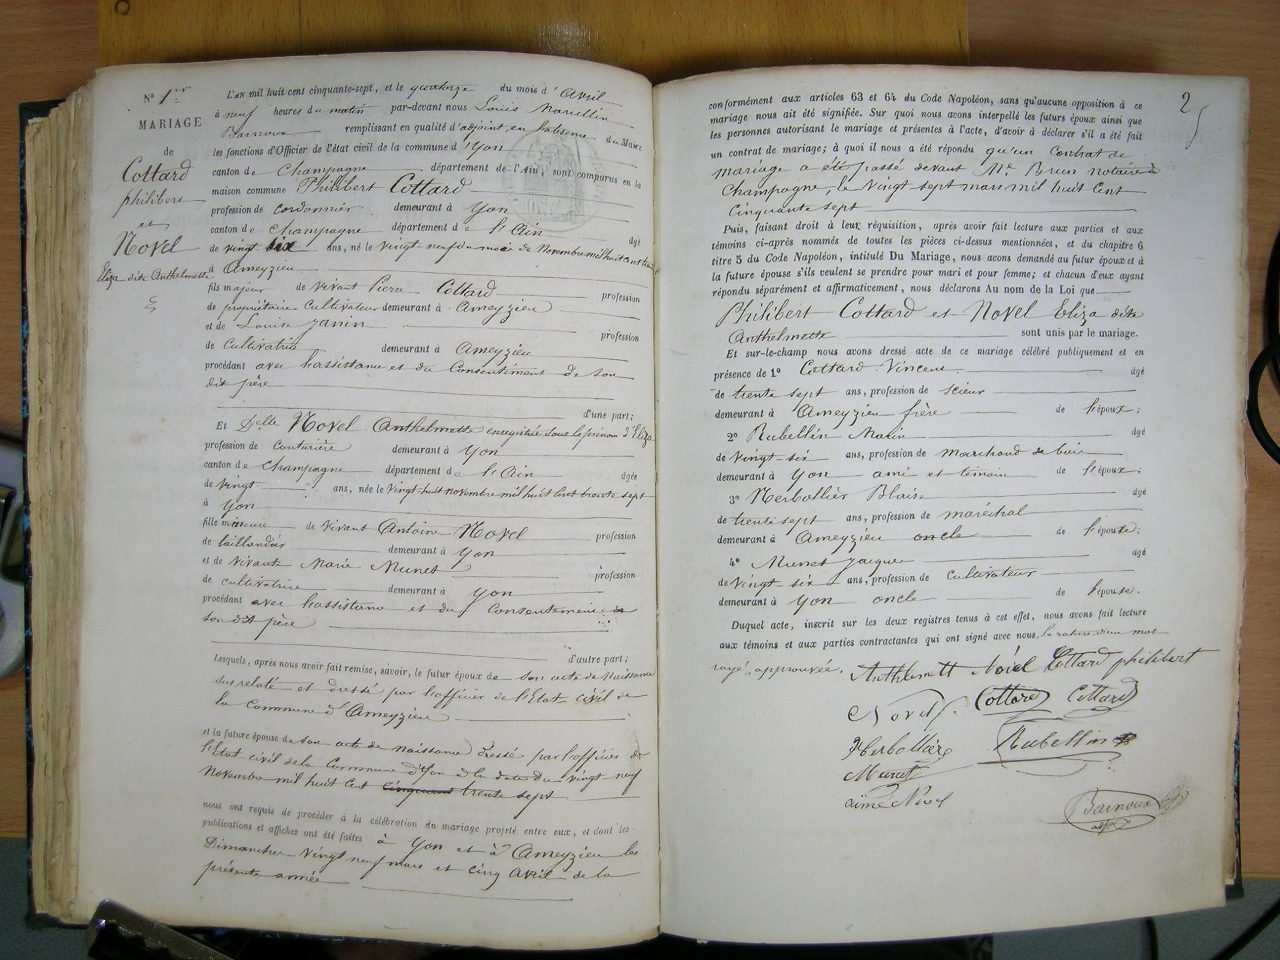 N° 1er
MARIAGE
de
Cottard
philibert
et
Novel
Eliza dite Anthelmette
L'AN mil huit cent cinquante-sept, et le quatorze du mois d'Avril
à neuf heures du matin par-devant nous Louis Marcellin
Barnoux remplissant en qualité d'adjoint, en l'absence du Maire
les fonctions d'Officier de l'état civil de la commune d'Yon
canton de Champagne, département de l'Ain, sont comparus en la
maison commune Philibert Cottard
profession de cordonnier demeurant à Yon
canton de Champagne département de l'Ain âgé
de vingt six ans, né le vingt neuf du mois de Novembre mil huit cent
à Ameyzieu
fils majeur de vivant Pierre Cottard profession
de propriétaire Cultivateur demeurant à Ameyzieu
et de Louise Janin profession
de Cultivatrice demeurant à Ameyzieu
procédant avec l'assistance et du Consentement de son
dit père
d'une part;
Et Delle Novel Anthelmette enregistrée sous le prénom d'Eliza
profession de Couturière demeurant à Yon
canton de Champagne département de l'Ain âgée
de vingt ans, née le vingt huit novembre mil huit cent trente sept
à Yon
fille mineure de vivant Antoine Novel profession
de taillandier demeurant à Yon
et de vivante Marie Munet profession
de cultivatrice demeurant à Yon
procédant avec l'assistance et du Consentement de
son dit père
d'autre part;
Lesquels, après nous avoir fait remise, savoir, le futur époux de son acte de Naissance
susrelaté et dressé par l'officier de l'Etat civil de
la Commune d'Ameyzieu
et la future épouse de son acte de Naissance dressé par l'officier de
l'Etat civil de la Commune d'Yon à la date du vingt neuf
Novembre mil huit cent cinquante trente sept
nous ont requis de procéder à la célébration du mariage projeté entre eux, et dont les
publications et affiches ont été faites à Yon et à Ameyzieu les
Dimanches vingt neuf mars et cinq Avril de la
présente année
2
conformément aux articles 63 et 64 du Code Napoléon, sans qu'aucune opposition à ce
mariage nous ait été signifiée. Sur quoi nous avons interpellé les futurs époux ainsi que
les personnes autorisant le mariage et présentes à l'acte, d'avoir à déclarer s'il a été fait
un contrat de mariage; à quoi il nous a été répondu qu'un Contrat de
mariage a été passé devant Me Brun notaire à
Champagne, le vingt sept mars mil huit cent
cinquante sept
Puis, faisant droit à leur réquisition, après avoir fait lecture aux parties et aux
témoins ci-après nommés de toutes les pièces ci-dessus mentionnées, et du chapitre 6
titre 5 du Code Napoléon, intitulé Du Mariage, nous avons demandé au futur époux et à
la future épouse s'ils veulent se prendre pour mari et pour femme; et chacun d'eux ayant
répondu séparément et affirmativement, nous déclarons Au nom de la Loi que
Philibert Cottard et Novel Eliza dite
Anthelmette sont unis par le mariage.
Et sur-le-champ nous avons dressé acte de ce mariage célébré publiquement et en
présence de 1° Cottard Vincent âgé
de trente sept ans, profession de scieur
demeurant à Ameyzieu frère de l'époux;
2° Rubellin Marin âgé
de vingt-six ans, profession de marchand de bois
demeurant à Yon ami et témoin de l'époux;
3° Herbollier Blaise âgé
de trente sept ans, profession de maréchal
demeurant à Ameyzieu oncle de l'épouse;
4° Munet Jacques âgé
de vingt six ans, profession de cultivateur
demeurant à Yon oncle de l'épouse.
Duquel acte, inscrit sur les deux registres tenus à cet effet, nous avons fait lecture
aux témoins et aux parties contractantes qui ont signé avec nous, la rature d'un mot
rayé, approuvée. Anthelmett Novel Cottard philibert
Novel Cottard Cottard
Herbollier Rubellin
Munet
aimé Novel Barnoux
adjt